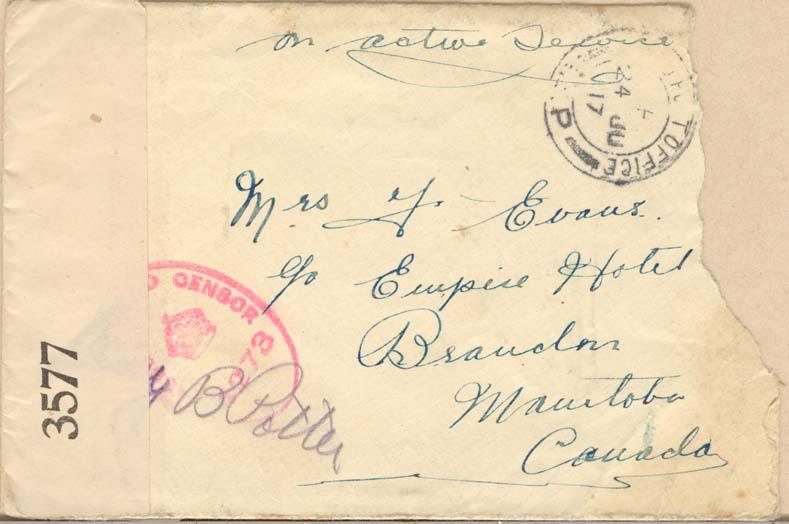 on active Service
T OFFICE
P
24 JU
17
Mrs J. Evans.
c/o Empire Hotel
Brandon
Manitoba
Canada
CENSOR
B Potter
3577